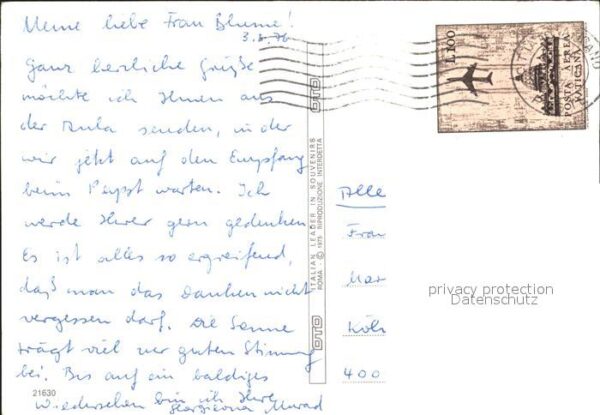 Meine liebe Frau Blume!
3.3.76
Ganz herzliche Grüße
möchte ich Ihnen aus
der Aula senden, in der
wir jetzt auf den Empfang
beim Papst warten. Ich
werde Ihrer gern gedenken
Es ist alles so ergreifend,
daß man das Danken nicht
vergessen darf. Die Sonne
trägt viel zur guten Stimmung
bei. Bis auf ein baldiges
Wiedersehen bin ich Ihre
21630
OTO
ITALIAN LEADER IN SOUVENIRS
ROMA - © 1975 RIPRODUZIONE INTERDETTA
OTO
L.100
POSTA AEREA
VATICANA
Alle
Frau
Mar
Köln
400
privacy protection
Datenschutz